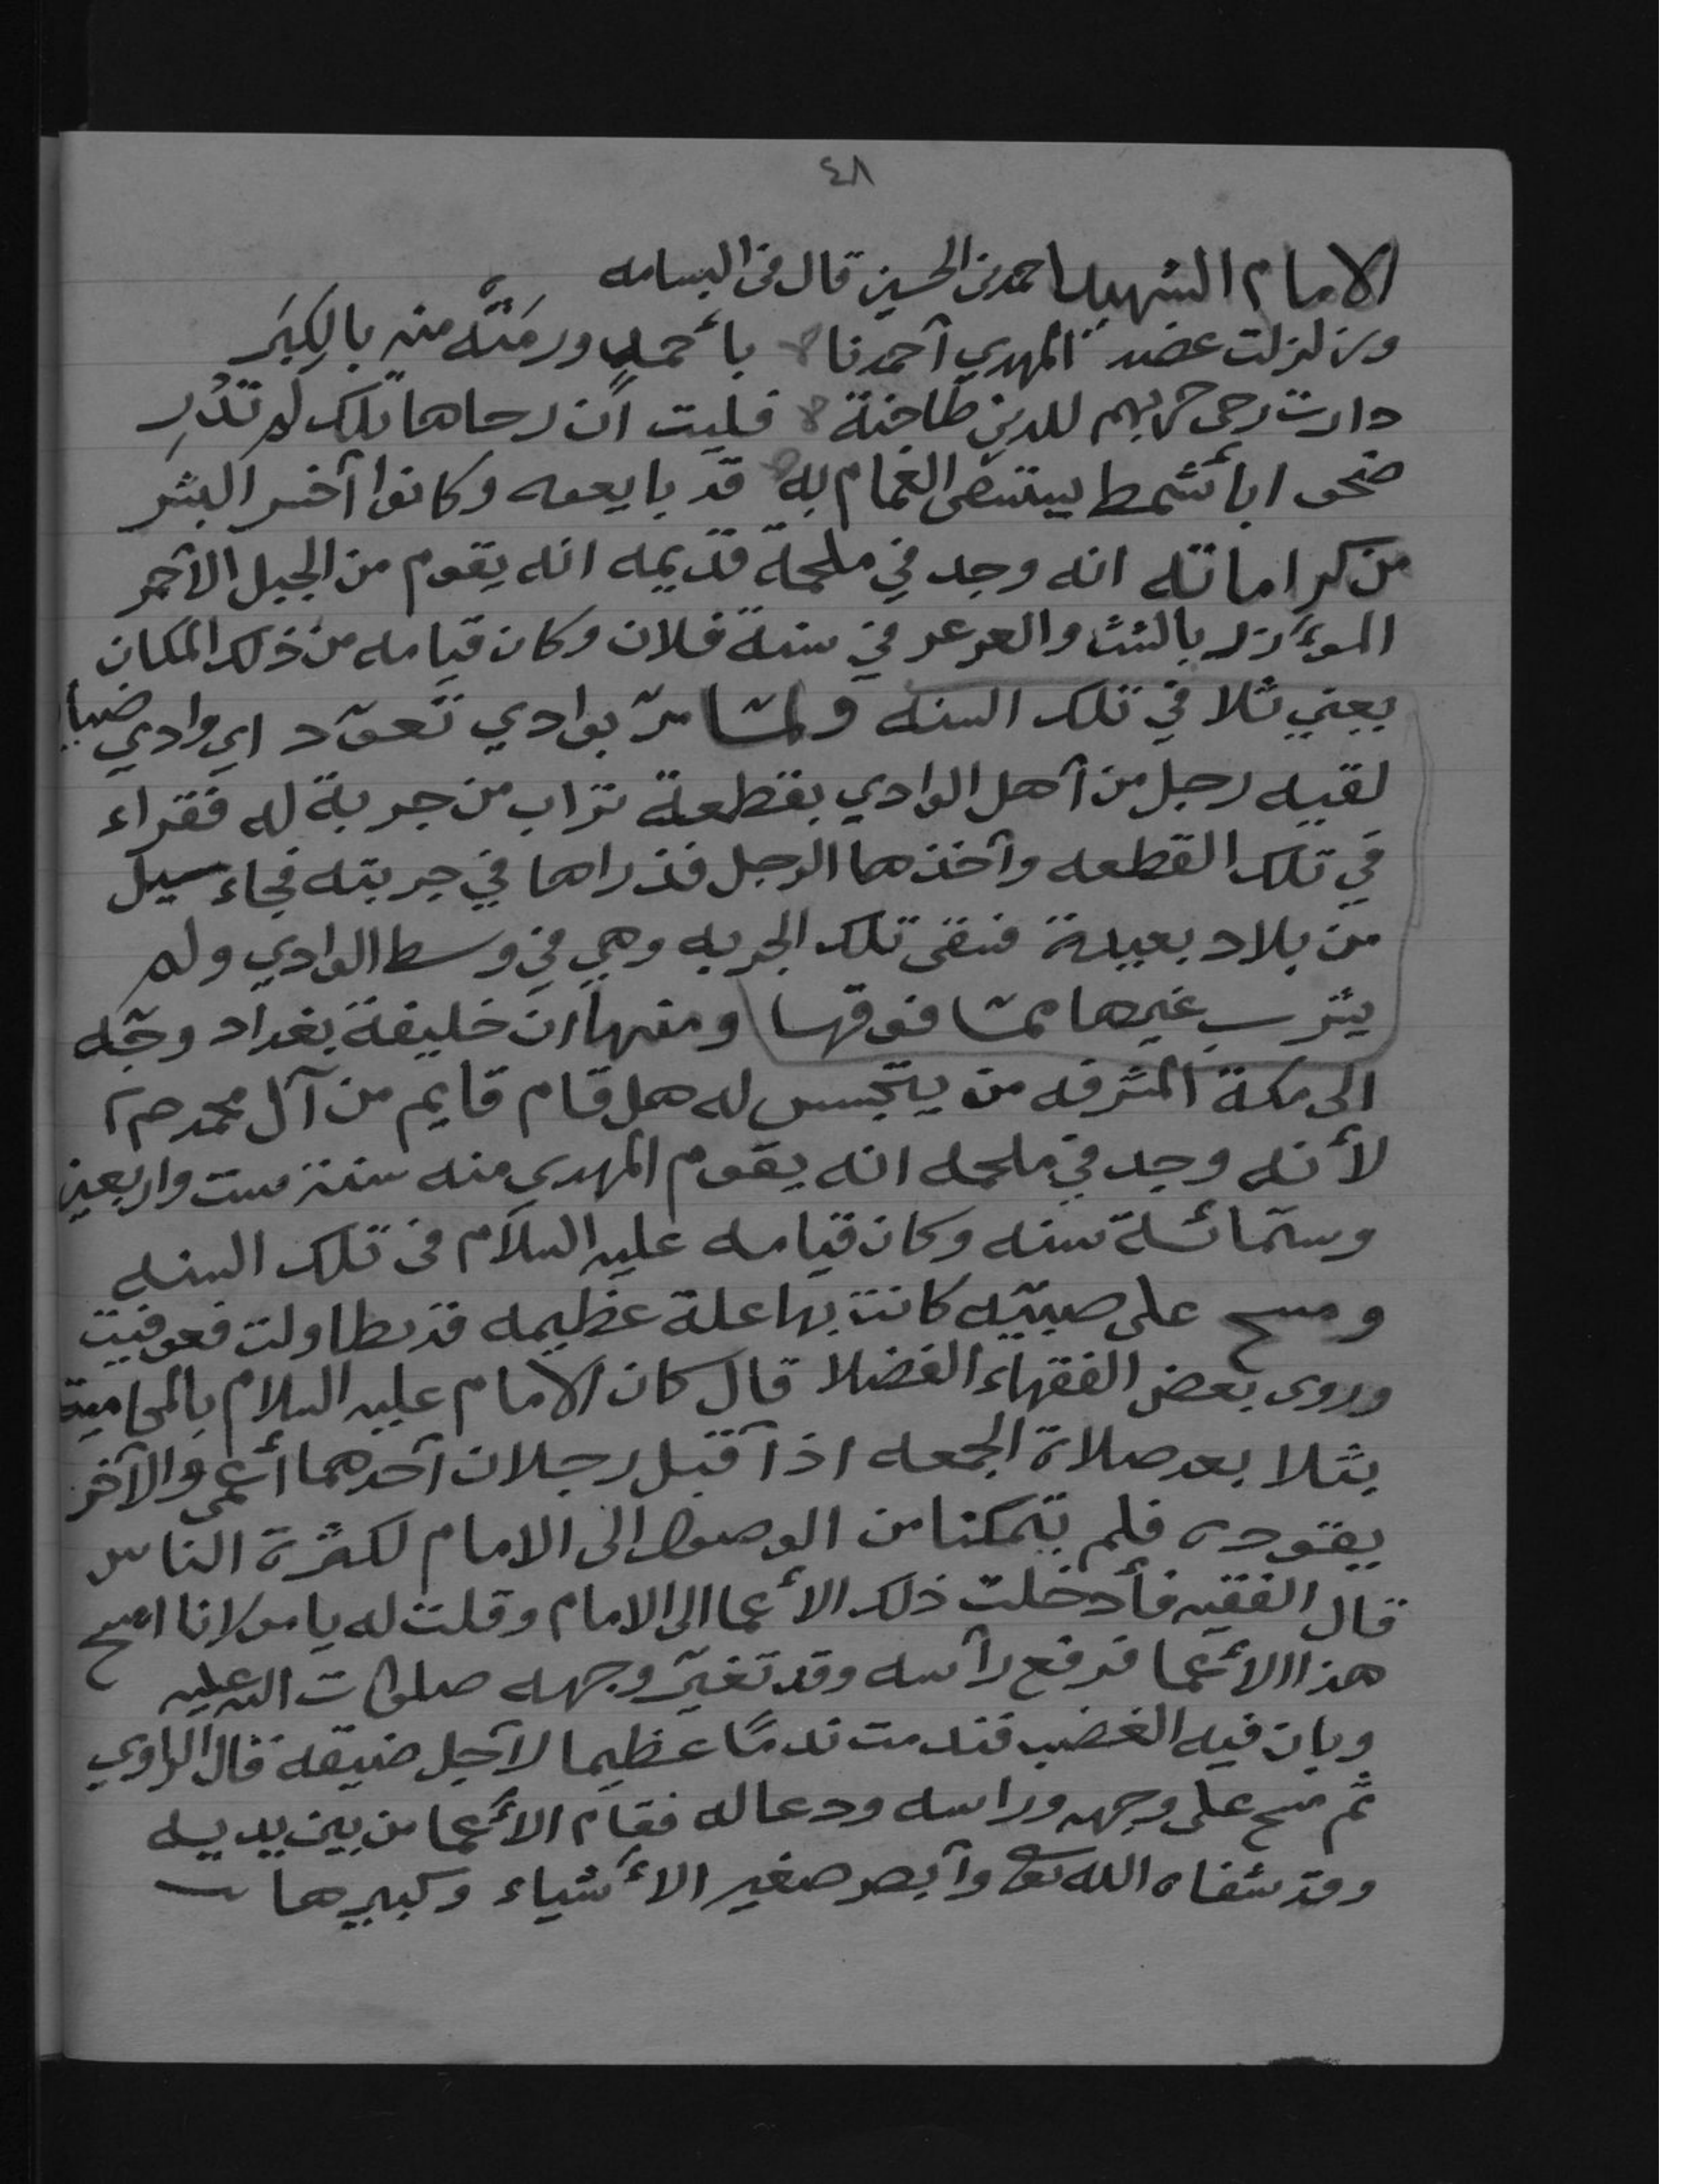 ٤٨
الامام الشهيد احمد بن الحسين قال في البسامه
وزلزلت عضد المهدي أحمدنا بأحمد ورمته منه بالكِبَر
دارت رحى حربهم للدين طاحنة فليت أن رحاها تلك لم تَدُرِ
ضحوا بأشمط يستسقى الغمام به قد بايعوه وكانوا آخسر البشر
من كراماته انه وجد في ملحمة قديمه انه يقوم من الجبل الأحمر
الموءزر بالشث والعرعر في سنة فلان وكان قيامه من ذلك المكان
يعني ثلا في تلك السنه ولمّا مرّ بوادي تعوّد اي وادي
لقيه رجل من أهل الوادي بقطعة تراب من جربة له فقراء
في تلك القطعه وأخذها الرجل فذراها في جربته فجاء سيل
من بلاد بعيدة فسقى تلك الجربه وهي في وسط الوادي ولم
يشرب غيرها ممّا فوقها ومنها ان خليفة بغداد وجّه
الى مكة المشرفه من يتجسس له هل قام قايم من آل محمد صم
لأنه وجد في ملحمه انه يقوم المهدي منه سنة ست واربعين
وستمائة سنه وكان قيامه عليه السلام في تلك السنه
ومسح على صبيّه كانت بها علة عظيمه قد تطاولت فعوفيت
وروى بعض الفقهاء الفضلا قال كان الامام عليه السلام بالمحاميد
بثلا بعد صلاة الجمعه اذ أقبل رجلان أحدهما أعمى والآخر
يقوده فلم يتمكنا من الوصول الى الامام لكثرة الناس
قال الفقيه فأدخلت ذلك الأعما الى الامام وقلت له يا مولانا امسح
هذا الأعما فرفع رأسه وقد تغيّر وجهه صلوات الله عليه
وبان فيه الغضب فندمت ندمًا عظيما لأجل ضيقه قال الراوي
ثم مسح على وجهه وراسه ودعا له فقام الأعما من بين يديه
وقد شفاه الله تعالى وأبصر صغير الأشياء وكبيرها